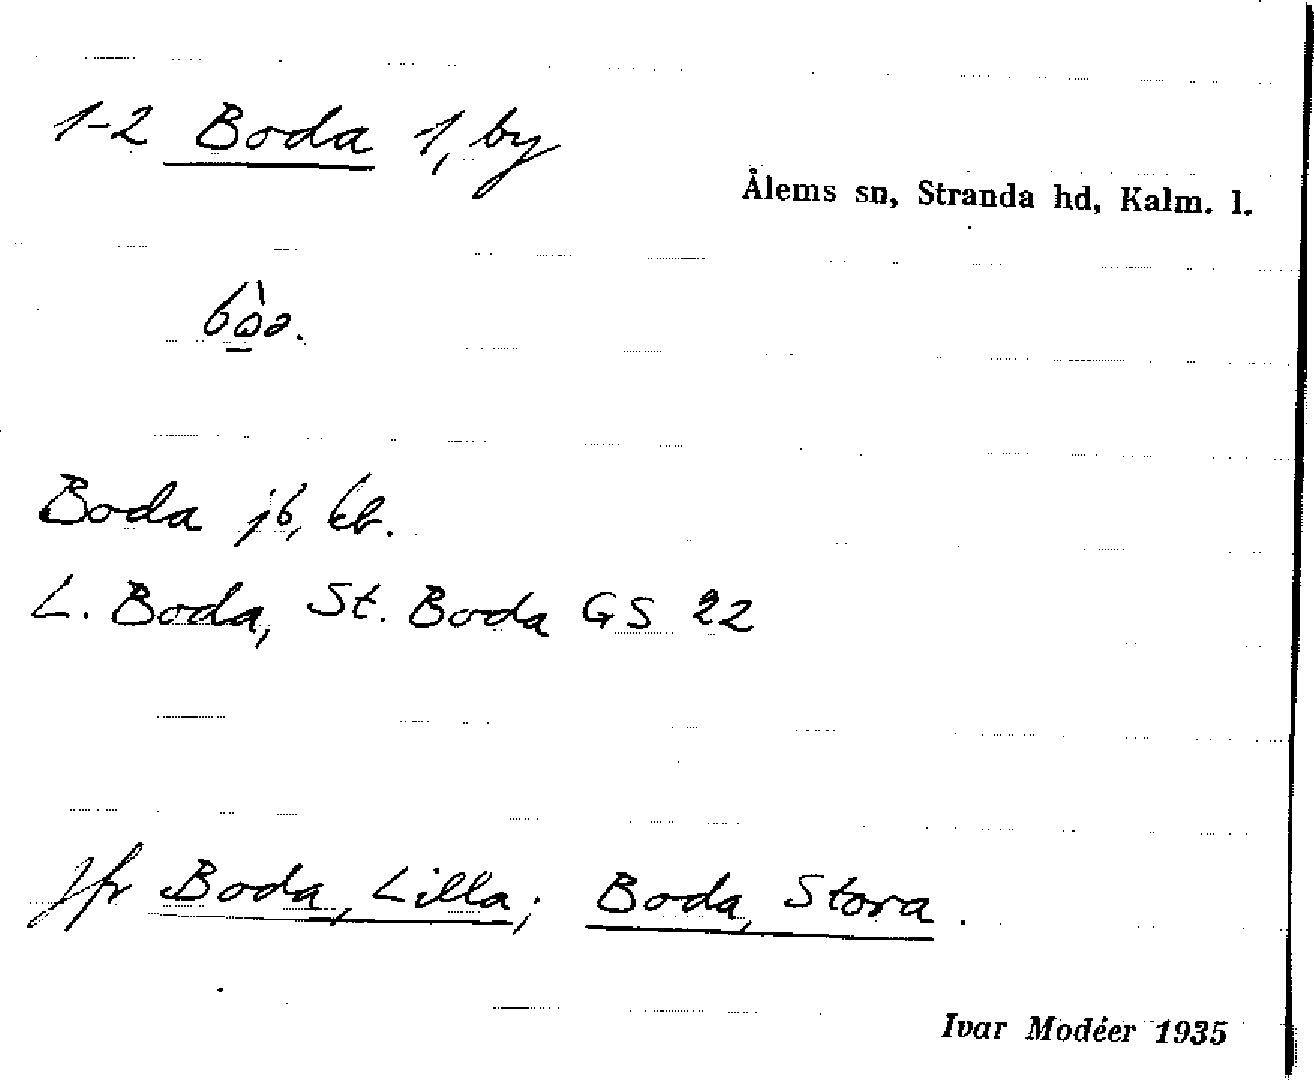 1-2 Boda 1, by
Ålems sn, Stranda hd, Kalm. l.
Boda jb, kb.
L. Boda, St. Boda GS 22
Jfr Boda, Lilla; Boda, Stora.
Ivar Modéer 1935